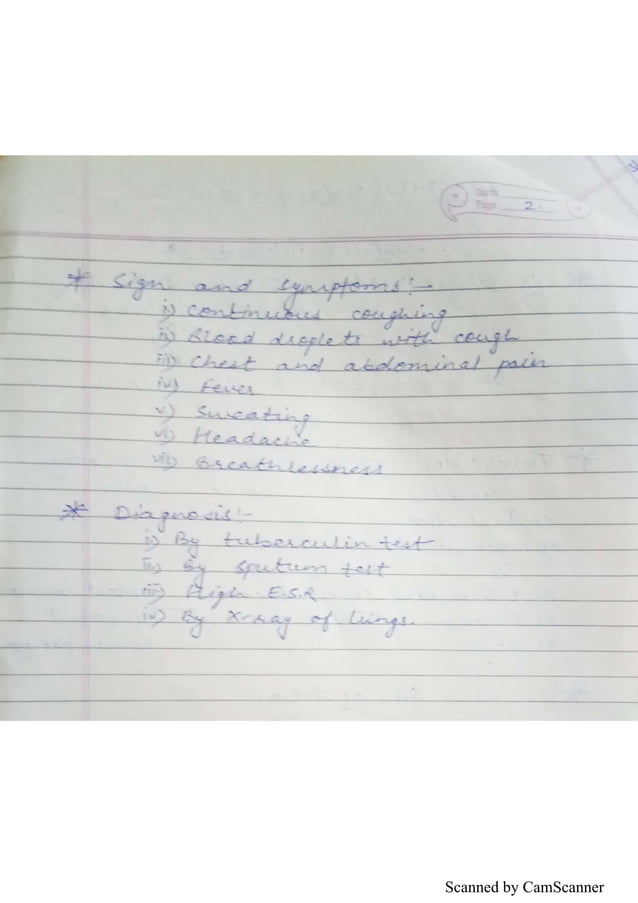 Date
Page 2.
* Sign and symptoms:-
i) Continuous coughing
ii) Blood droplets with cough
iii) Chest and abdominal pain
iv) Fever
v) Sweating
vi) Headache
vii) Breathlessness
* Diagnosis:-
i) By tuberculin test
ii) By sputum test
iii) High E.S.R
iv) By X-ray of lungs.
Scanned by CamScanner